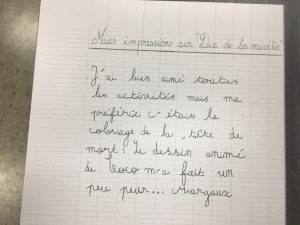 Nos impressions sur "Dia de los muertos"
J'ai bien aimé toutes
les activités mais ma
préférée c'étais le
coloriage de la, tête de
mort. Le dessin animé
de Coco m'a fait un
peu peur... Margaux